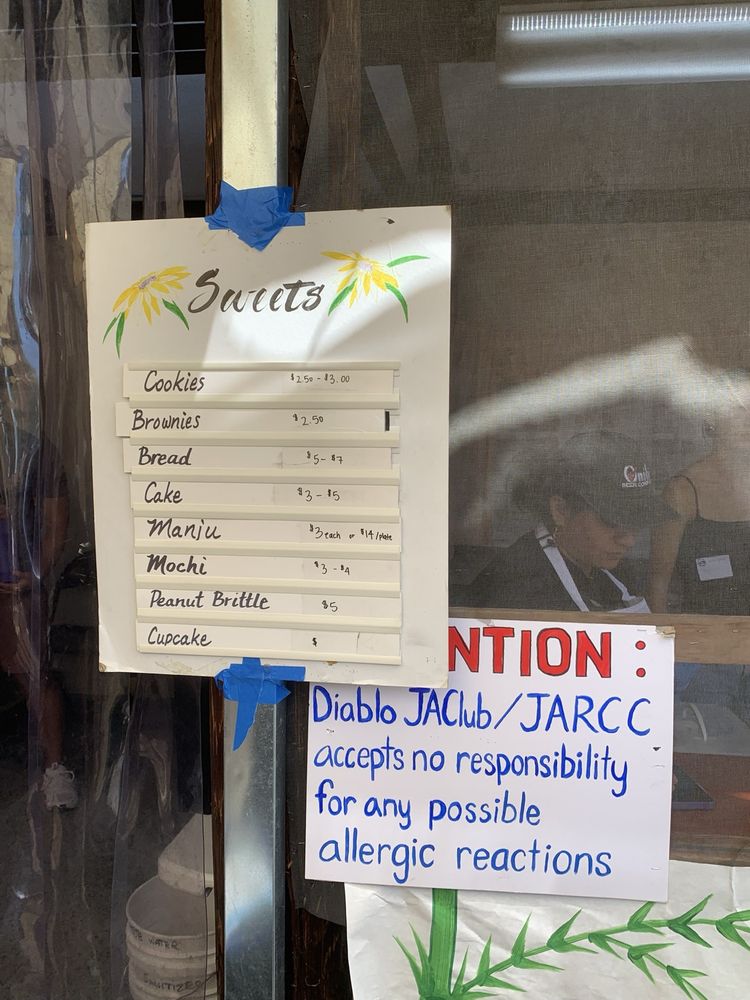 Sweets
Cookies $2.50 - $3.00
Brownies $2.50
Bread $5 - $7
Cake $3 - $5
Manju $3 each or $14/plate
Mochi $3 - $4
Peanut Brittle $5
Cupcake $
NTION :
Diablo JAClub/JARCC
accepts no responsibility
for any possible
allergic reactions
WATER
SANITIZE